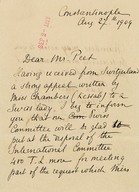 Constantinople
Aug 27th 1909
Dear Mr. Peet
Having received from Switzerland
a strong appeal written by
Miss Chambers (Kessab) to a
Swiss lady, I beg to inform
you that our Swiss
Committee will be glad to put
at the disposal of the
International Committee
400 T.L. more for meeting
part of the request which Miss